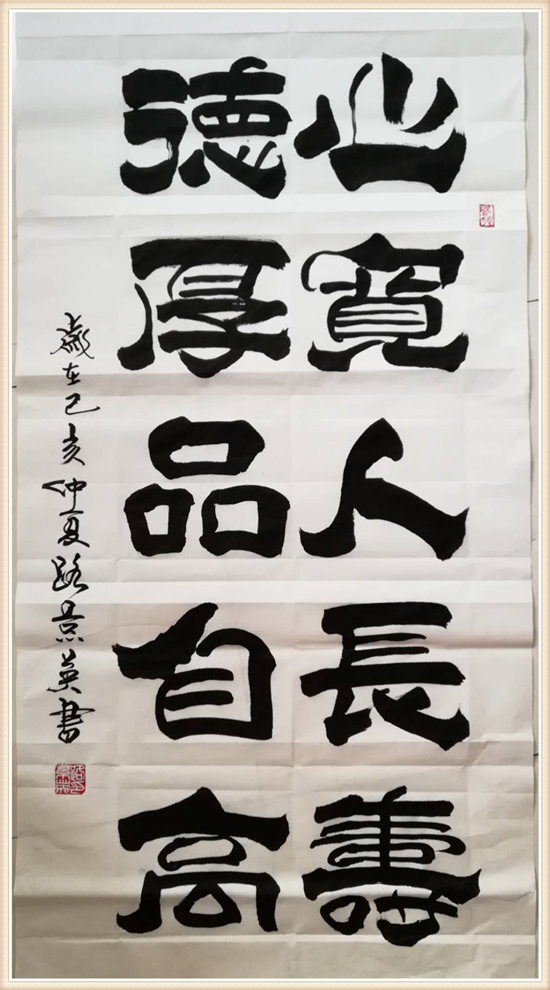 心寬人長壽
德厚品自高
歲在己亥仲夏路景英書